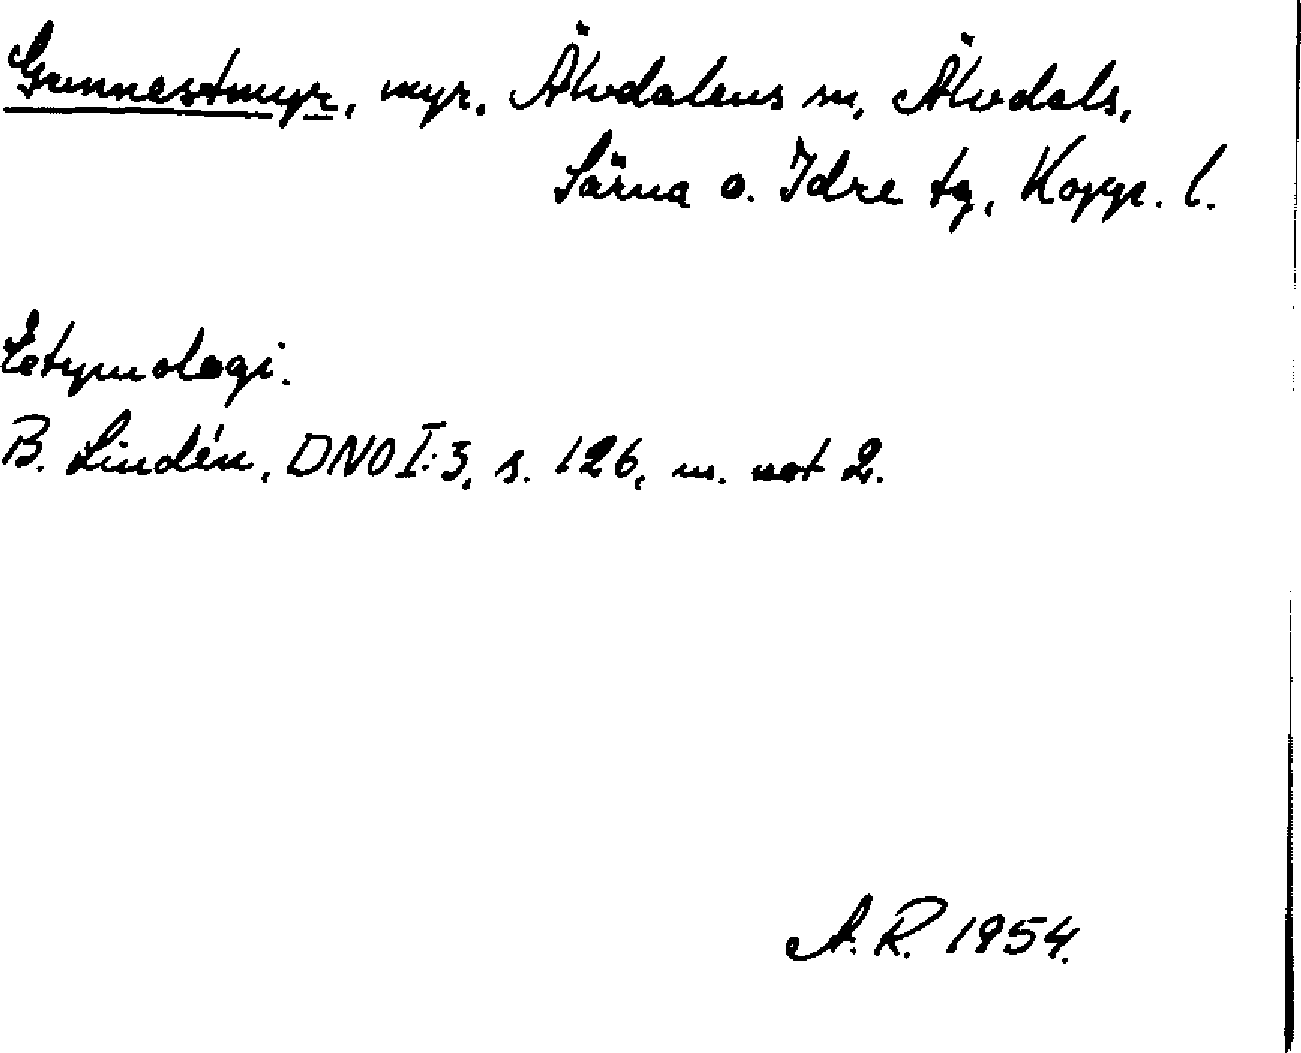 Gunnestmyr, myr, Älvdalens sn, Älvdals,
Särna o. Idre tg, Kopp. l.
Etymologi.
B. Lindén, DNO I:3, s. 126, m. not 2.
A.R. 1954.